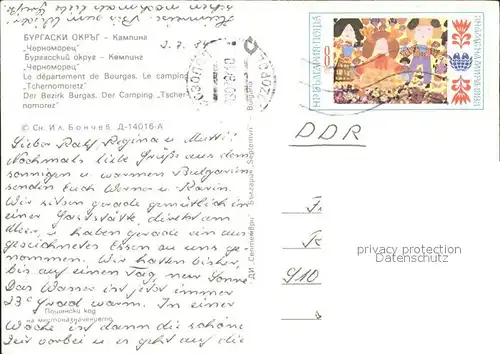 БУРГАСКИ ОКРЪГ – Кампинг
„Черноморец"
Бургасский округ – Кемпинг
„Черноморец"
Le département de Bourgas. Le camping
„Tchernomoretz"
Der Bezirk Burgas. Der Camping „Tscher-
nomorez"
3. 7. 84
© Сн. Ил. Бончев. Д-14016-А
Lieber Ralf, Regina u. Mutti!
Nochmals liebe Grüße aus dem
sonnigen u. warmen Bulgarien
senden Euch Werner u. Karin.
Wir sitzen gerade gemütlich in
einer Gaststätte, direkt am
Meer, u. haben gerade ein aus-
gezeichnetes Essen zu uns ge-
nommen. Wir hatten bisher,
bis auf einen Tag, nur Sonne.
Das Wasser ist jetzt immer
23° Grad warm. In einer
Woche ist dann die schöne
Zeit vorbei u. es geht auf die
Пощенски код
на местоназначението
ДИ „Септември"
НР БЪЛГАРИЯ ПОЩА
8
DDR
Fr
910
privacy protection
Datenschutz